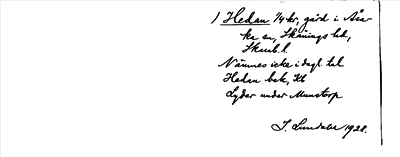 1 Hedan 1/4 kr, gård i Åra-
ka sn, Skånings hd,
Skarab. l.
Nämnes icke i dagl. tal
Hedan bek, Kl
Lyder under Munstorp
J. Lundahl 1928.